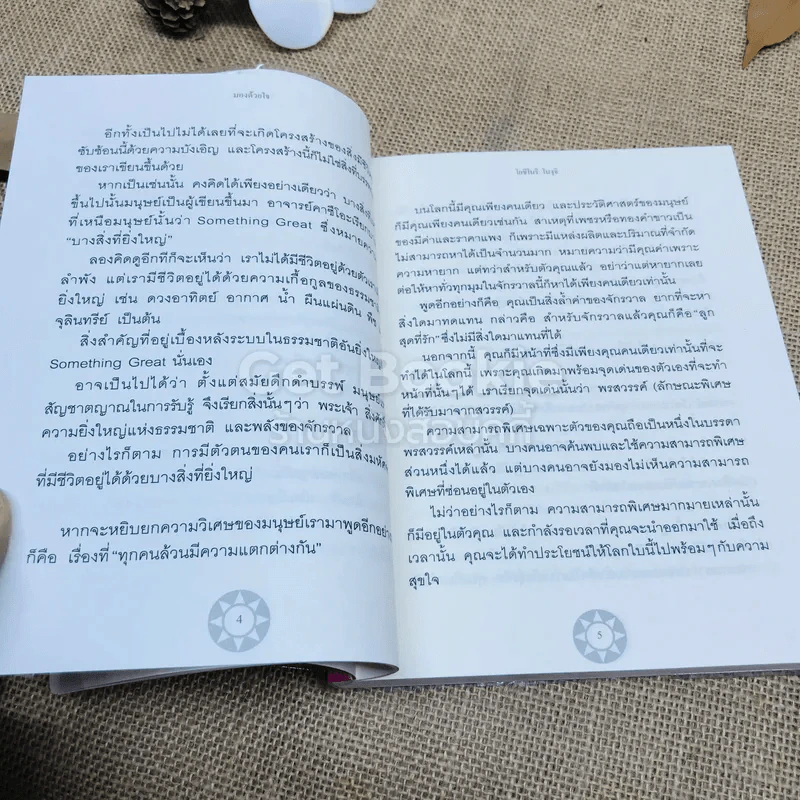 มองด้วยใจ
อีกทั้งเป็นไปไม่ได้เลยที่จะเกิดโครงสร้างของสิ่งมีชีวิต
ซับซ้อนนี้ด้วยความบังเอิญ และโครงสร้างนี้ก็ไม่ใช่สิ่งที่บรรพ
ของเราเขียนขึ้นด้วย
หากเป็นเช่นนั้น คงคิดได้เพียงอย่างเดียวว่า บางสิ่งที่
ขึ้นไปนั้นมนุษย์เป็นผู้เขียนขึ้นมา อาจารย์คาซึโอะเรียก
ที่เหนือมนุษย์นั้นว่า Something Great ซึ่งหมายความ
“บางสิ่งที่ยิ่งใหญ่”
ลองคิดดูอีกทีก็จะเห็นว่า เราไม่ได้มีชีวิตอยู่ด้วยตัวเรา
ลำพัง แต่เรามีชีวิตอยู่ได้ด้วยความเกื้อกูลของธรรมชาติ
ยิ่งใหญ่ เช่น ดวงอาทิตย์ อากาศ น้ำ ผืนแผ่นดิน พืช
จุลินทรีย์ เป็นต้น
สิ่งสำคัญที่อยู่เบื้องหลังระบบในธรรมชาติอันยิ่งใหญ่
Something Great นั่นเอง
อาจเป็นไปได้ว่า ตั้งแต่สมัยดึกดำบรรพ์ มนุษย์
สัญชาตญาณในการรับรู้ จึงเรียกสิ่งนั้นๆว่า พระเจ้า สิ่งศักดิ์
ความยิ่งใหญ่แห่งธรรมชาติ และพลังของจักรวาล
อย่างไรก็ตาม การมีตัวตนของคนเราก็เป็นสิ่งมหัศ
ที่มีชีวิตอยู่ได้ด้วยบางสิ่งที่ยิ่งใหญ่
หากจะหยิบยกความวิเศษของมนุษย์เรามาพูดอีกอย่าง
ก็คือ เรื่องที่ “ทุกคนล้วนมีความแตกต่างกัน”
4
โกชิโนริ โนงุจิ
บนโลกนี้มีคุณเพียงคนเดียว และประวัติศาสตร์ของมนุษย์
ก็มีคุณเพียงคนเดียวเช่นกัน สาเหตุที่เพชรหรือทองคำขาวเป็น
ของมีค่าและราคาแพง ก็เพราะมีแหล่งผลิตและปริมาณที่จำกัด
ไม่สามารถหาได้เป็นจำนวนมาก หมายความว่ามีคุณค่าเพราะ
ความหายาก แต่ทว่าสำหรับตัวคุณแล้ว อย่าว่าแต่หายากเลย
ต่อให้หาทั่วทุกมุมในจักรวาลนี้ก็หาได้เพียงคนเดียวเท่านั้น
พูดอีกอย่างก็คือ คุณเป็นสิ่งล้ำค่าของจักรวาล ยากที่จะหา
สิ่งใดมาทดแทน กล่าวคือ สำหรับจักรวาลแล้วคุณก็คือ“ลูก
สุดที่รัก”ซึ่งไม่มีสิ่งใดมาแทนที่ได้
นอกจากนี้ คุณก็มีหน้าที่ซึ่งมีเพียงคุณคนเดียวเท่านั้นที่จะ
ทำได้ในโลกนี้ เพราะคุณเกิดมาพร้อมจุดเด่นของตัวเองที่จะทำ
หน้าที่นั้นๆได้ เราเรียกจุดเด่นนั้นว่า พรสวรรค์ (ลักษณะพิเศษ
ที่ได้รับมาจากสวรรค์)
ความสามารถพิเศษเฉพาะตัวของคุณถือเป็นหนึ่งในบรรดา
พรสวรรค์เหล่านั้น บางคนอาจค้นพบและใช้ความสามารถพิเศษ
ส่วนหนึ่งได้แล้ว แต่บางคนอาจยังมองไม่เห็นความสามารถ
พิเศษที่ซ่อนอยู่ในตัวเอง
ไม่ว่าอย่างไรก็ตาม ความสามารถพิเศษมากมายเหล่านั้น
ก็มีอยู่ในตัวคุณ และกำลังรอเวลาที่คุณจะนำออกมาใช้ เมื่อถึง
เวลานั้น คุณจะได้ทำประโยชน์ให้โลกใบนี้ไปพร้อมๆกับความ
สุขใจ
5